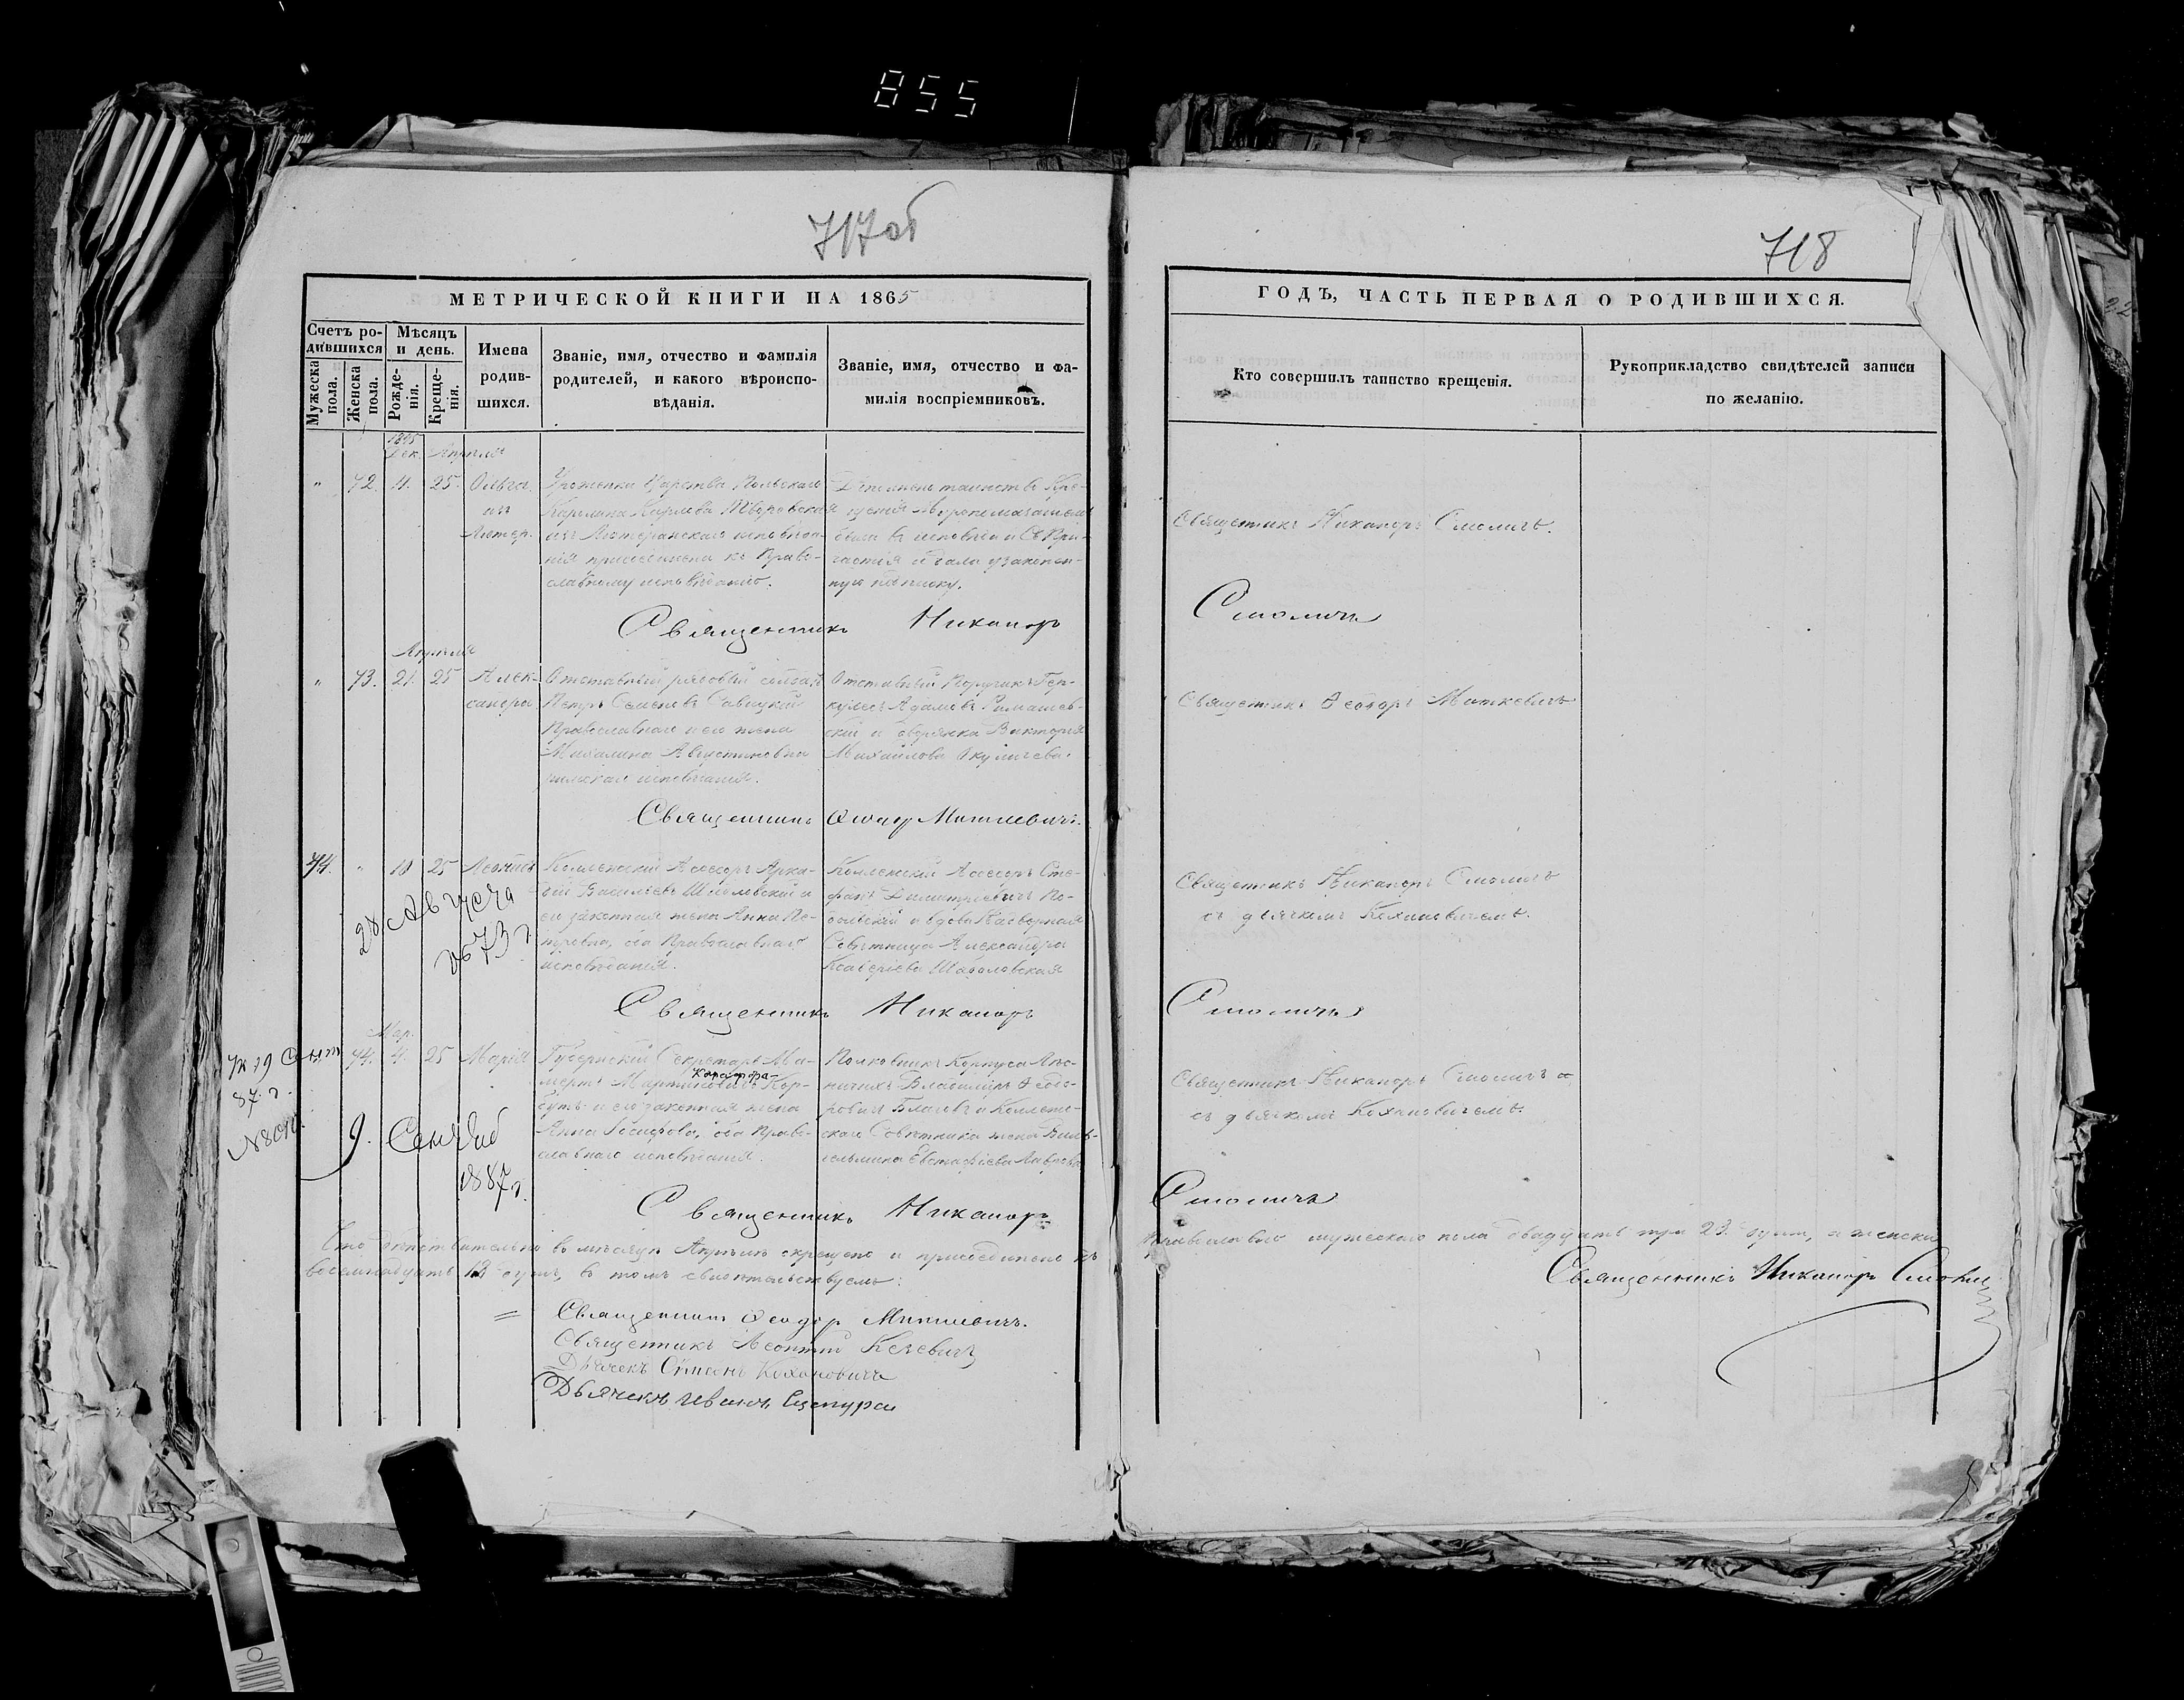 855
717об
718
МЕТРИЧЕСКОЙ КНИГИ НА 1865
ГОДЪ, ЧАСТЬ ПЕРВАЯ О РОДИВШИХСЯ.
Счетъ ро-
дившихся
Мужеска
пола.
Женска
пола.
Мѣсяцъ
и день.
Рожде-
нія.
Креще-
нія.
Имена
родив-
шихся.
Званіе, имя, отчество и фамилія
родителей, и какого вѣроиспо-
вѣданія.
Званіе, имя, отчество и фа-
милія воспріемниковъ.
Кто совершилъ таинство крещенія.
Рукоприкладство свидѣтелей записи
по желанію.
Дек. Апрѣля
" 72. 11. 25. Ольга
из
Лютер.
Уроженка Царства Польскаго
Каролина Карлова
изъ Лютеранскаго исповѣда-
нія присоединена къ Право-
славному исповѣданію.
таинств Кре-
щенія и Миропомазанія
была въ исповѣди и Св. При-
частія и дала узаконен-
ную подписку.
Священникъ Никаноръ Смоличъ.
Священникъ Никаноръ
Смоличъ
Апрѣля
" 73. 21. 25 Алек-
сандра
Отставный рядовый солдатъ
Петръ Семеновъ Савицкій
Православнаго и его жена
Михалина Августиновна
римскаго исповѣданія.
Отставный Поручикъ Гер-
кулесъ Адамовъ Ромашев-
скій и дворянка Викторія
Михайлова Окуличева.
Священникъ Ѳеодоръ Миткевичъ
Священникъ Ѳеодоръ Миткевичъ.
74. " 10 25 Леонидъ
Коллежскій Асесоръ Арка-
дій Васильевъ Шидловскій и
его законная жена Анна Пе-
трова, оба Православнаго
исповѣданія.
Коллежскій Асесоръ Сте-
фанъ Димитріевичъ По-
дольскій и вдова Надворная
Совѣтница Александра
Ксаверіева
Священникъ Никаноръ Смоличъ
съ дьячкомъ Кохановичемъ.
28 Августа
1873 г.
Священникъ Никаноръ
Смоличъ
Мар.
74. 4. 25 Марія
Губернскій Секретарь Ма-
мертъ Мартиновичъ Кор-
сутъ и его законная жена
Анна Іосифова, оба Право-
славнаго исповѣданія.
Полковникъ Корпуса Лѣс-
ничихъ Владиміръ Ѳеодо-
ровичъ и Коллеж-
скаго Совѣтника жена Виль-
гельмина Евстафіева
Священникъ Никаноръ Смоличъ
съ дьячкомъ Кохановичемъ.
19 Сент
87 г.
9. Сентяб
1887 г.
Священникъ Никаноръ
Смоличъ
Что дѣйствительно въ мѣсяцѣ Апрѣлѣ окрещено и присоединено къ
православію мужескаго пола двадцать три 23 душъ, а женска
восемнадцать 18 душъ, въ томъ свидѣтельствуемъ:
Священникъ Никаноръ Смоличъ
Священникъ Ѳеодоръ Миткевичъ.
Священникъ Леонтій
Дьячекъ Симеонъ Кохановичъ
Дьячекъ Иванъ